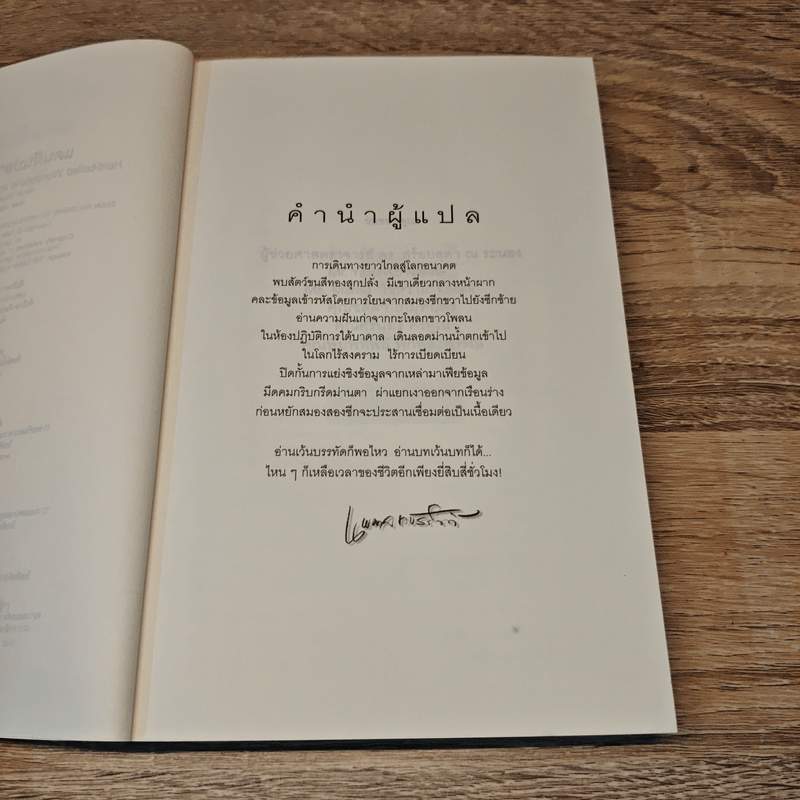 คำนำผู้แปล
การเดินทางยาวไกลสู่โลกอนาคต
พบสัตว์ขนสีทองสุกปลั่ง มีเขาเดี่ยวกลางหน้าผาก
คละข้อมูลเข้ารหัสโดยการโยนจากสมองซีกขวาไปยังซีกซ้าย
อ่านความฝันเก่าจากกะโหลกขาวโพลน
ในห้องปฏิบัติการใต้บาดาล เดินลอดม่านน้ำตกเข้าไป
ในโลกไร้สงคราม ไร้การเบียดเบียน
ปิดกั้นการแย่งชิงข้อมูลจากเหล่ามาเฟียข้อมูล
มีดคมกริบกรีดม่านตา ผ่าแยกเงาออกจากเรือนร่าง
ก่อนหยักสมองสองซีกจะประสานเชื่อมต่อเป็นเนื้อเดียว
อ่านเว้นบรรทัดก็พอไหว อ่านบทเว้นบทก็ได้...
ไหน ๆ ก็เหลือเวลาของชีวิตอีกเพียงยี่สิบสี่ชั่วโมง!